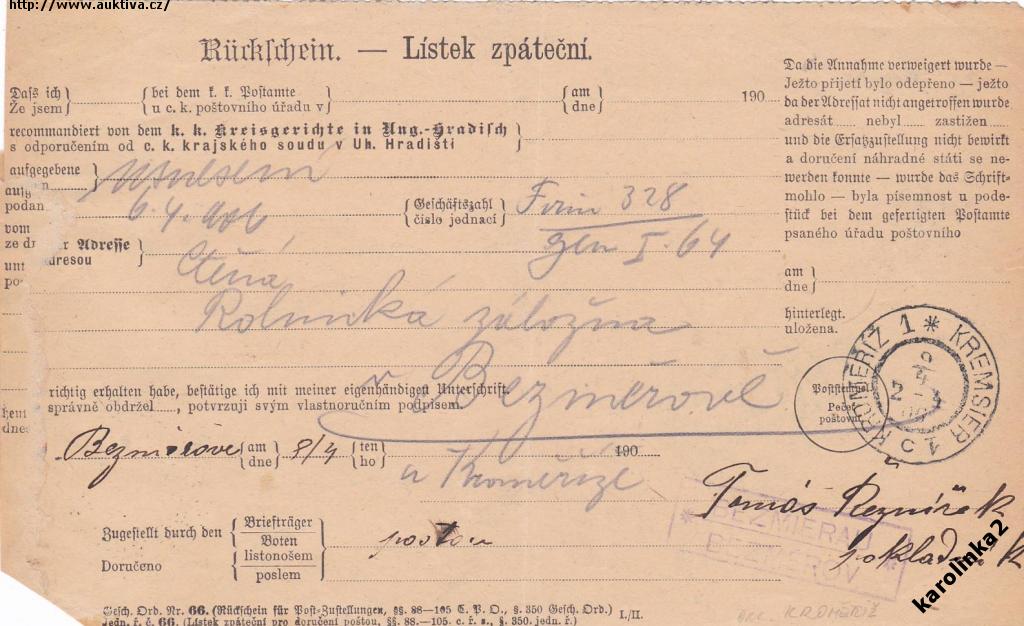 http://www.auktiva.cz/
Rückschein. — Lístek zpáteční.
Daß ich
Že jsem
bei dem k. k. Postamte
u c. k. poštovního úřadu v
am
dne
190
recommandiert von dem k. k. Kreisgerichte in Ung.-Hradisch
s odporučením od c. k. krajského soudu v Uh. Hradišti
aufgegebene
podan
6.4. 906
Geschäftszahl
číslo jednací
Firm 328
gen I. 64
vom
ze d
r Adresse
dresou
unt
po
Ctěná
Rolnická záložna
v Bezměrově
u Kroměříže
richtig erhalten habe, bestätige ich mit meiner eigenhändigen Unterschrift.
správně obdržel...., potvrzuji svým vlastnoručním podpisem.
dne
Bezměrově
am
dne
8/4
ten
ho
190
Zugestellt durch den
Doručeno
Briefträger
Boten
listonošem
poslem
poštou
Gesch. Ord. Nr. 66. (Rückschein für Post-Zustellungen, §§. 88—105 C. P. O., §. 350 Gesch. Ord.)
Jedn. ř. č. 66. (Lístek zpáteční pro doručení poštou, §§. 88—105. c. ř. s., §. 350 jedn. ř.)
I./II.
Da die Annahme verweigert wurde —
Ježto přijetí bylo odepřeno — ježto
da der Adressat nicht angetroffen wurde
adresát .... nebyl .... zastižen
und die Ersatzzustellung nicht bewirkt
a doručení náhradné státi se ne-
werden konnte — wurde das Schrift-
mohlo — byla písemnost u pode-
stück bei dem gefertigten Postamte
psaného úřadu poštovního
am
dne
hinterlegt.
uložena.
Poststempel
Pečeť
poštovní
KROMĚŘÍŽ 1 * KREMSIER 1
Tomás Řezníček
pokladník
BEZMĚROV
KROMĚŘÍŽ
karolinka2